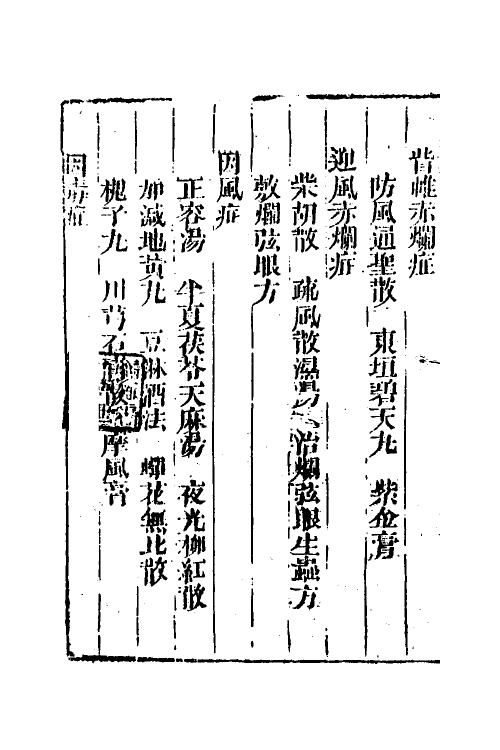 眥帷赤爛症
防風通聖散 東垣碧天丸 紫金膏
迎風赤爛症
柴胡散 疏風散濕湯 治爛弦眼生蟲方
敷爛弦眼方
因風症
正容湯 半夏茯苓天麻湯 夜光柳紅散
加減地黃丸 豆淋酒法 蟬花無比散
槐子丸 川芎石 散 摩風膏
因毒症